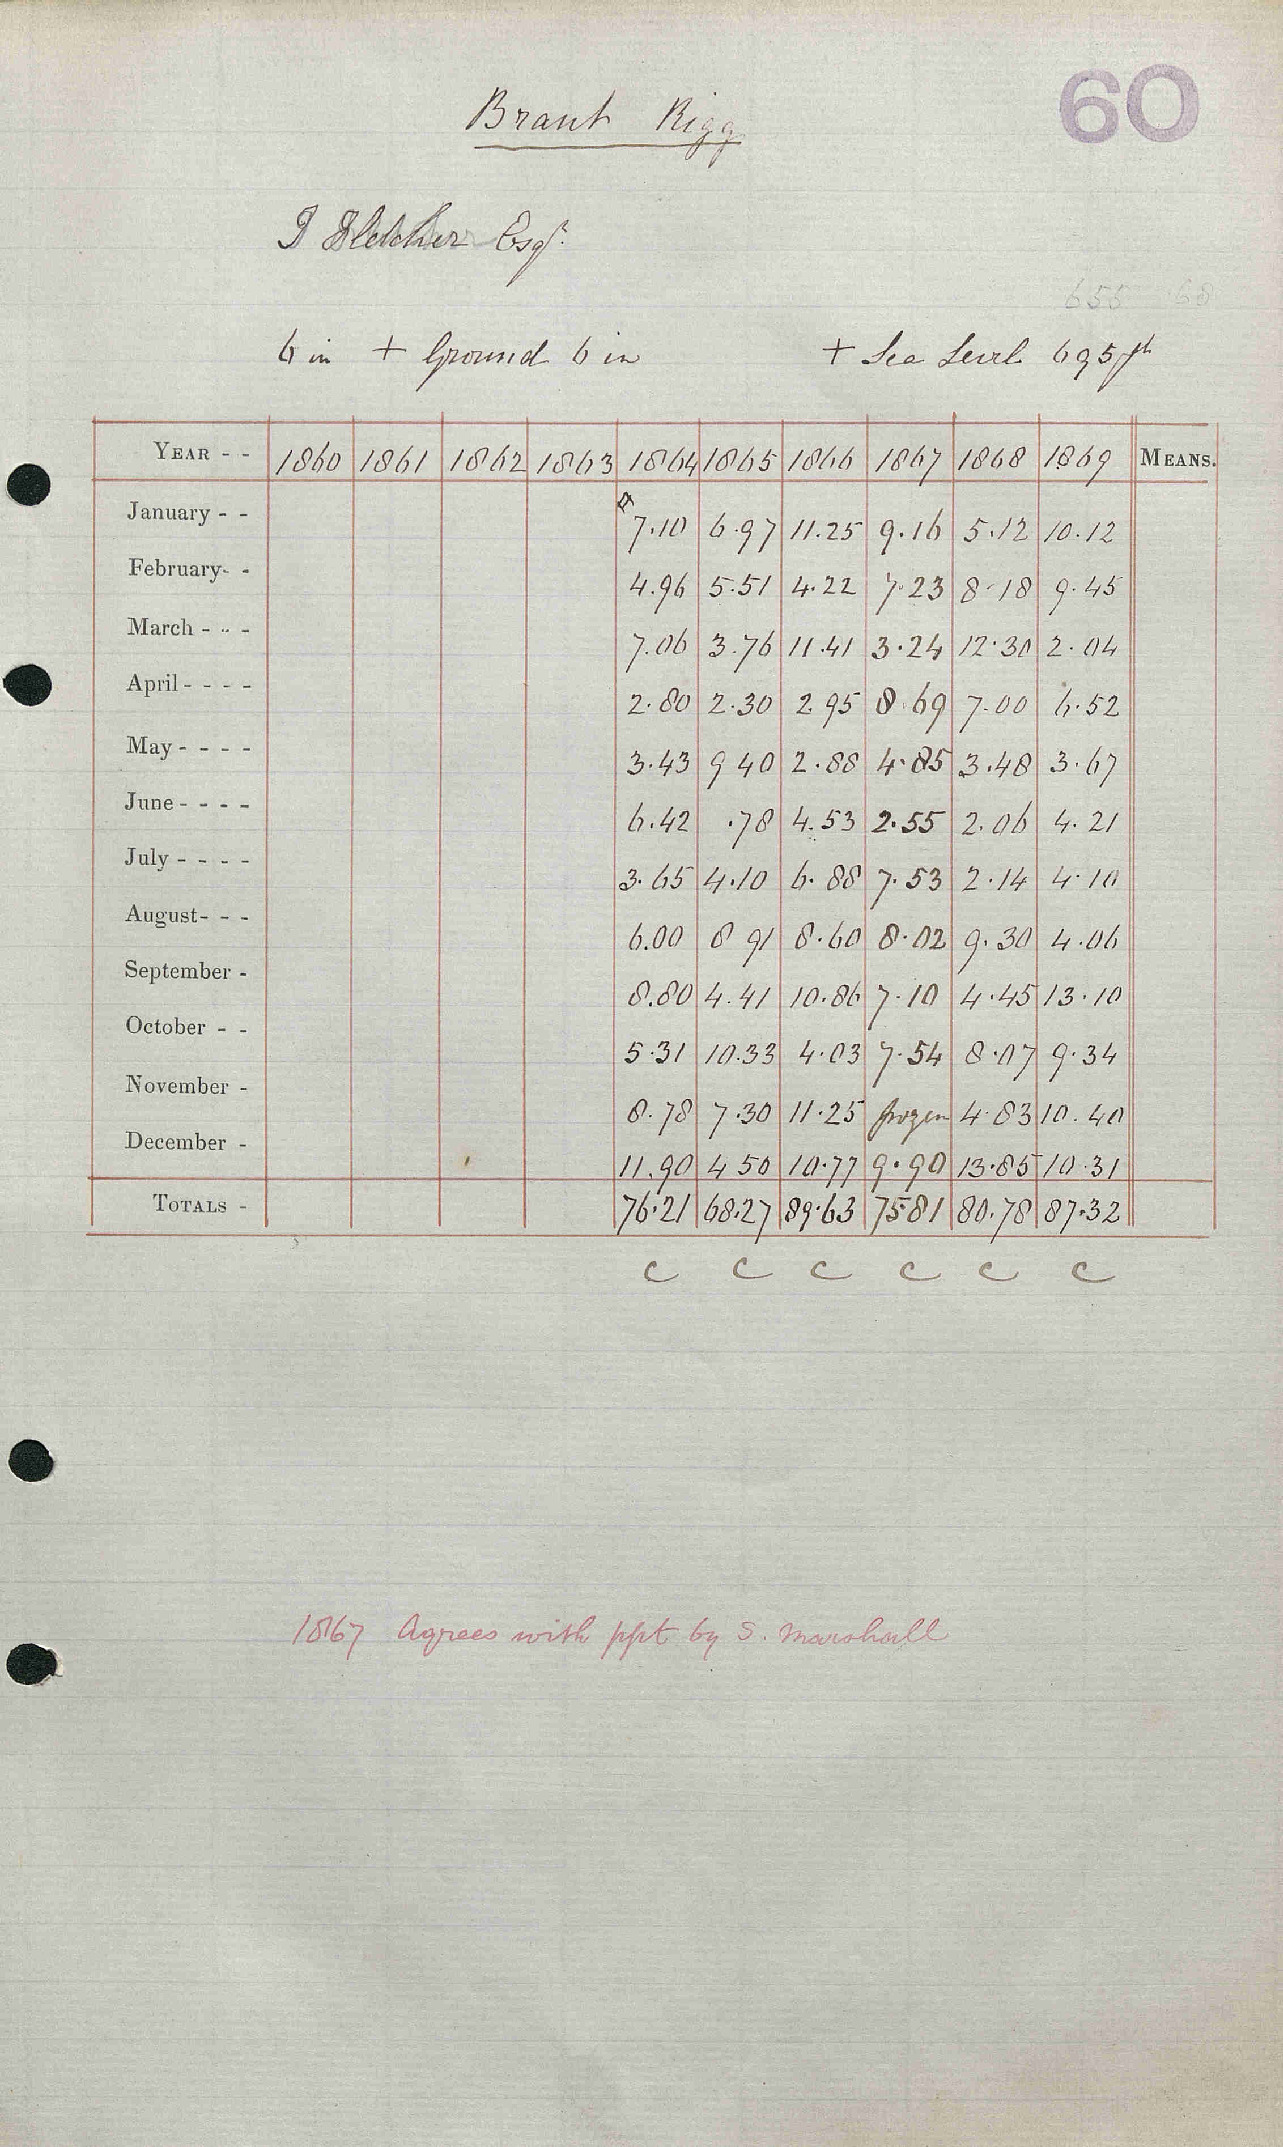 60
Brant Rigg
I Fletcher Esqr.
6 in + Ground 6 in + Sea Level 695 ft
YEAR - - 1860 1861 1862 1863 1864 1865 1866 1867 1868 1869 MEANS.
January - - 7.10 6.97 11.25 9.16 5.12 10.12
February- - 4.96 5.51 4.22 7.23 8.18 9.45
March - - - 7.06 3.76 11.41 3.24 12.30 2.04
April - - - - 2.80 2.30 2.95 8.69 7.00 6.52
May - - - - 3.43 9 40 2.88 4.85 3.48 3.67
June - - - - 6.42 .78 4.53 2.55 2.06 4.21
July - - - - 3.65 4.10 6.88 7.53 2.14 4.10
August- - - 6.00 8 91 8.60 8.02 9.30 4.06
September - 8.80 4.41 10.86 7.10 4.45 13.10
October - - 5.31 10.33 4.03 7.54 8.07 9.34
November - 8.78 7.30 11.25 frozen 4.83 10.40
December - 11.90 4 50 10.77 9.90 13.85 10.31
TOTALS - 76.21 68.27 89.63 75 81 80.78 87.32
C C C C C C
1867 Agrees with ppt by S. Marshall